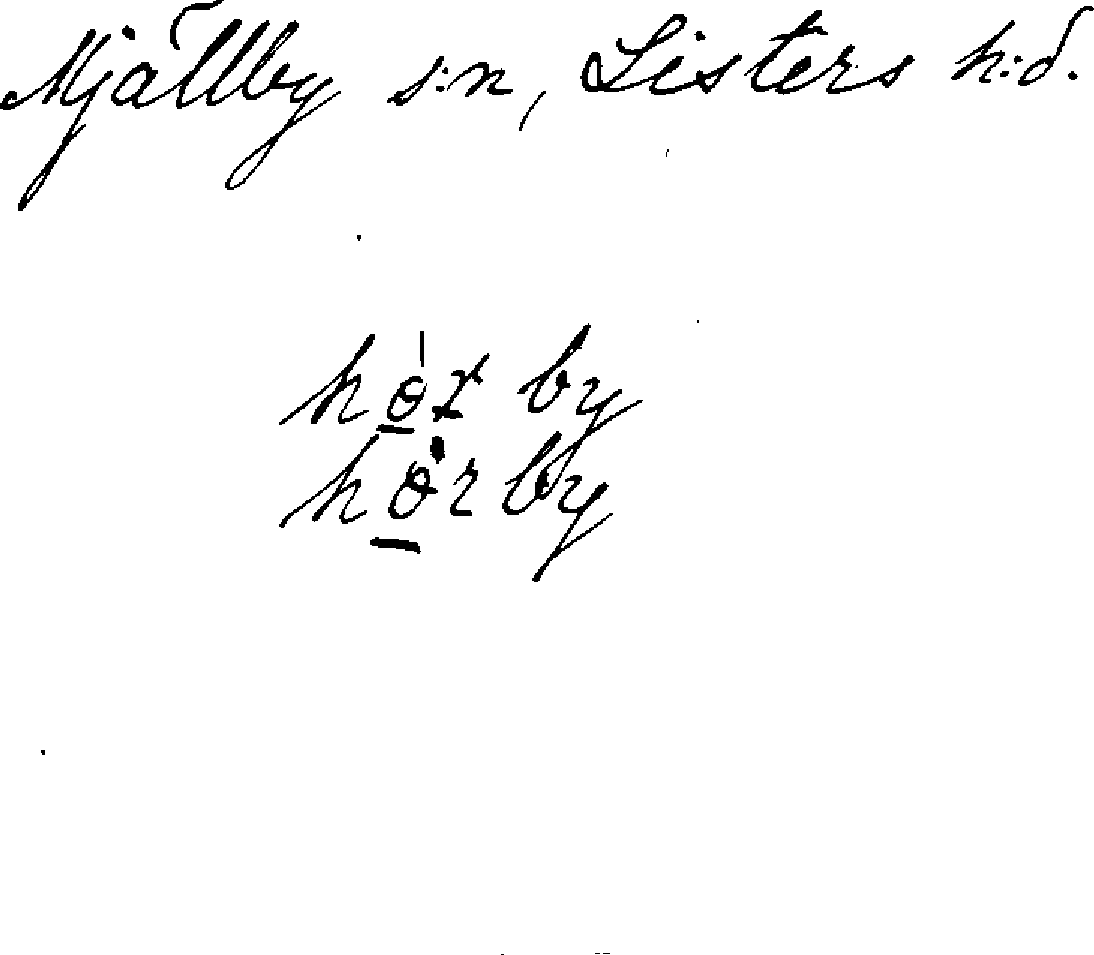 Mjällby s:n, Listers h:d.
hɵ̠ʹr by
hɵ̠̀r by